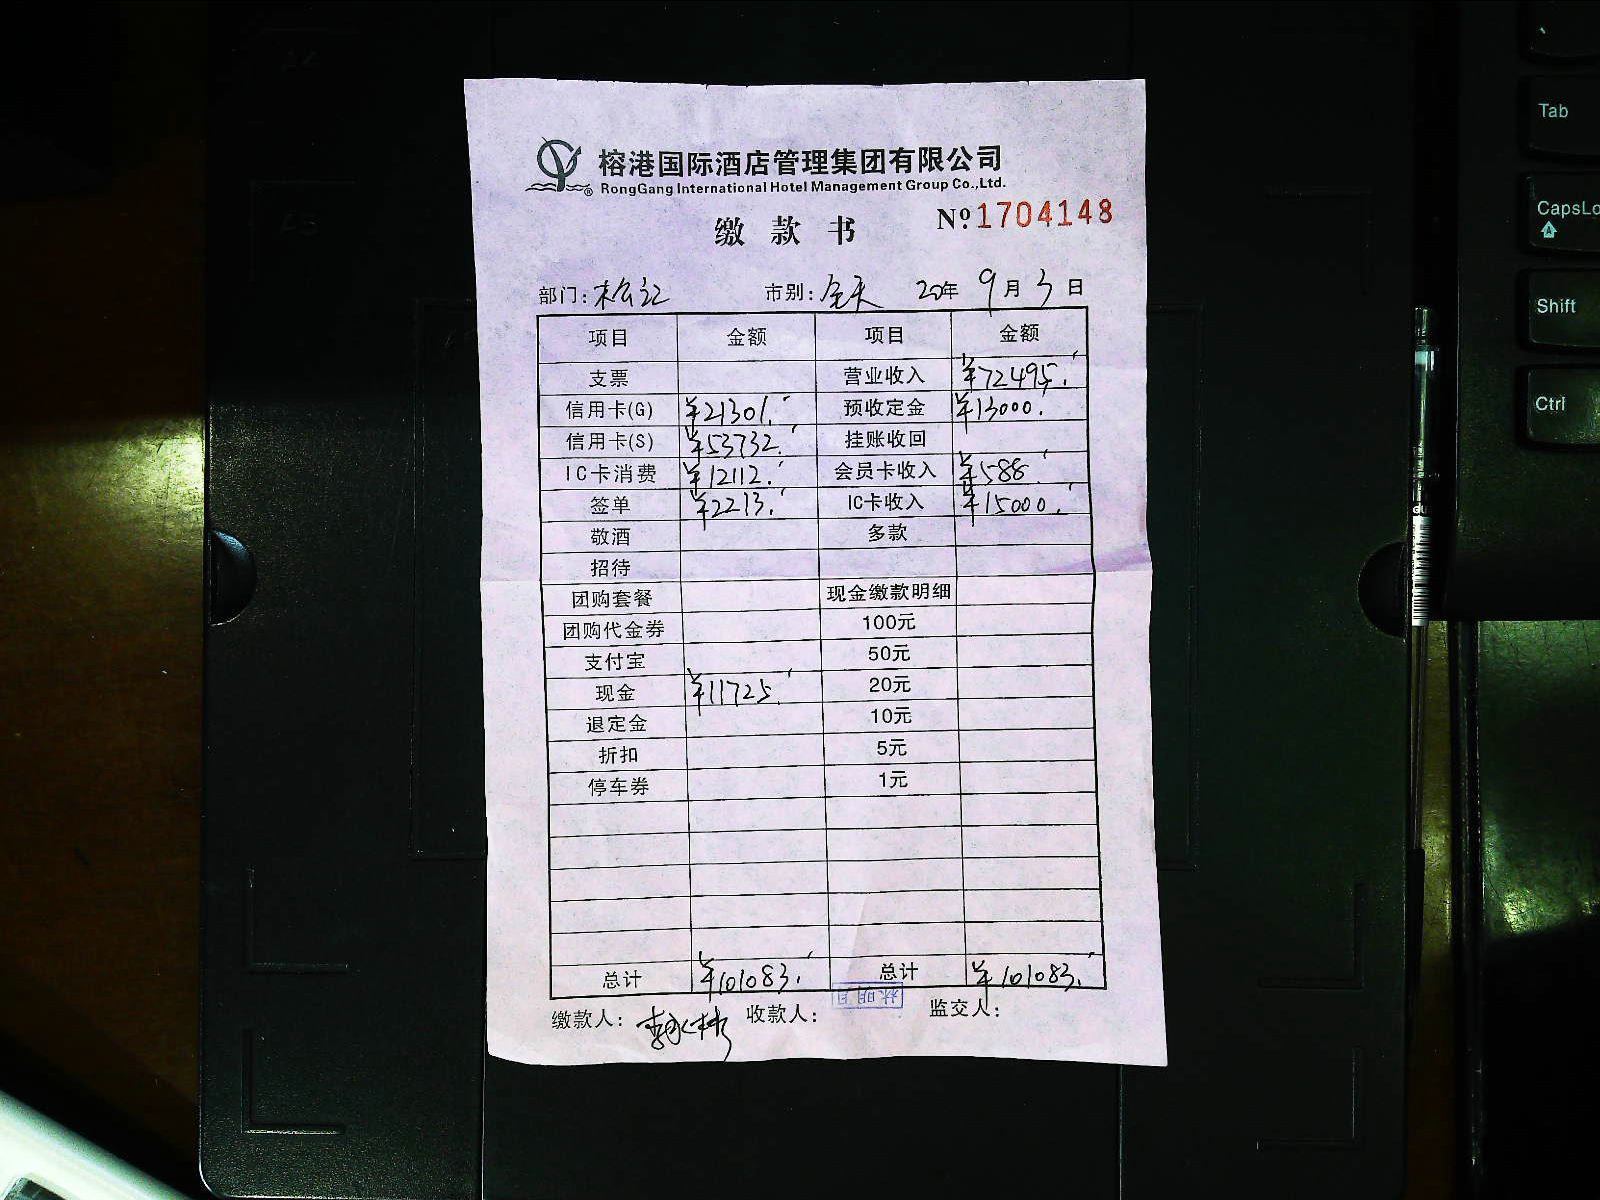 榕港国际酒店管理集团有限公司
RongGang International Hotel Management Group Co.,Ltd.
缴款书 Nº.1704148
部门: 市别:全天 20年9月3日
项目 金额 项目 金额
支票 营业收入 ¥72495.
信用卡(G) ¥21301. 预收定金 ¥13000.
信用卡(S) ¥53732. 挂账收回
IC卡消费 ¥12112. 会员卡收入 ¥588.
签单 ¥2213. IC卡收入 ¥15000.
敬酒 多款
招待
团购套餐 现金缴款明细
团购代金券 100元
支付宝 50元
现金 ¥11725. 20元
退定金 10元
折扣 5元
停车券 1元
总计 ¥101083. 总计 ¥101083.
缴款人: 收款人: 林明月 监交人:
Tab
CapsLo
Shift
Ctrl